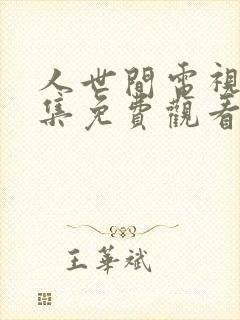 人世間電視
集免費觀看
王華斌